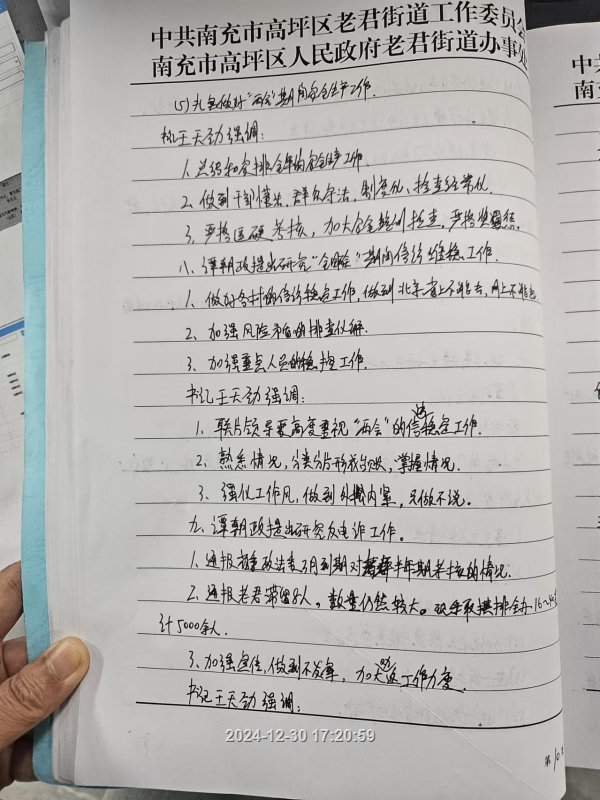 中共南充市高坪区老君街道工作委员会
南充市高坪区人民政府老君街道办事处
(5)扎实做好“两会”期间安全生产工作.
书记王天劲强调:
1、总结和安排全年的安全生产工作.
2、做到干部懂法,群众守法,制度化、检查经常化.
3、严格过硬考核,加大安全培训检查,严格奖惩.
八、谭朝政提出研究“全国会”期间信访维稳工作.
1、做好各村的信访稳定工作,做到北京、省上不能去,网上不能
2、加强风险矛盾的排查化解.
3、加强重点人员的稳控工作.
书记王天劲强调:
1、联片领导要高度重视“两会”的信访稳定工作.
2、熟悉情况,分类分片形成,掌握情况.
3、强化工作作风,做到外松内紧,只做不说.
九、谭朝政提出研究反电诈工作。
1、通报省委政法委3月到期对半年期考核的情况.
2、通报老君滞留8人。数量仍然较大。现采取摸排全办16~4
计5000余人.
3、加强宣传,做到不发案,加大劝返工作力度
书记王天劲强调:
2024-12-30 17:20:59
中共
南充